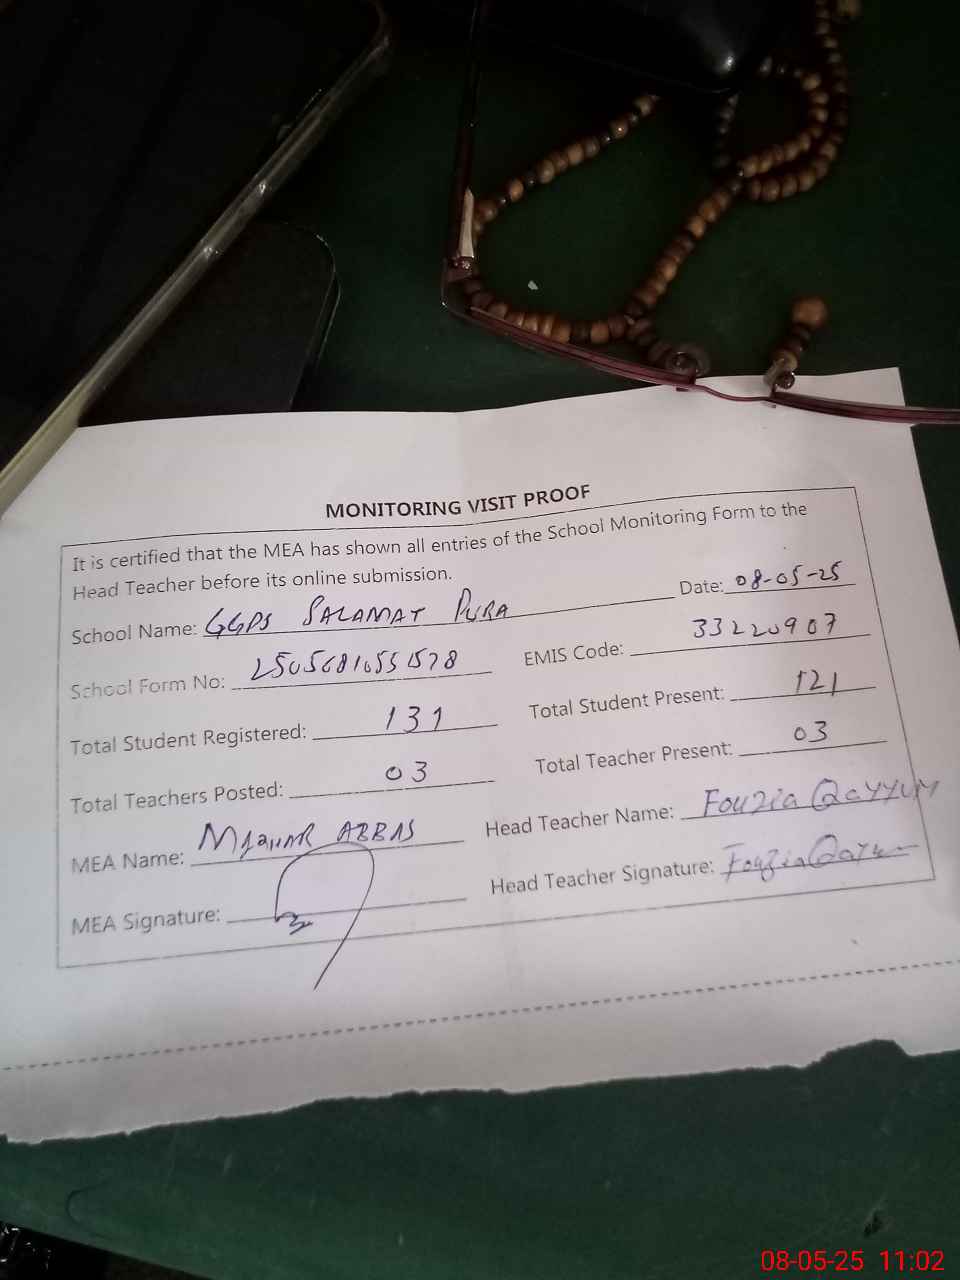 MONITORING VISIT PROOF
It is certified that the MEA has shown all entries of the School Monitoring Form to the
Head Teacher before its online submission.
Date: 08-05-25
School Name: GGPS SALAMAT PURA
School Form No: EMIS Code: 33220907
Total Student Registered: 131 Total Student Present: 121
Total Teachers Posted: 03 Total Teacher Present: 03
MEA Name: ABBAS Head Teacher Name: Fouzia Qayyum
MEA Signature: Head Teacher Signature: Fouzia Qayum
08-05-25 11:02